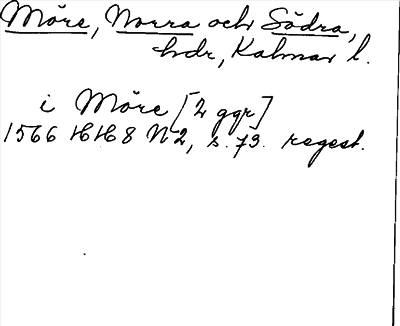 Möre, Norra och Södra,
hdr, Kalmar l.
i Möre [2 ggr]
1566 HH 8 N 2, s. 73. regest.